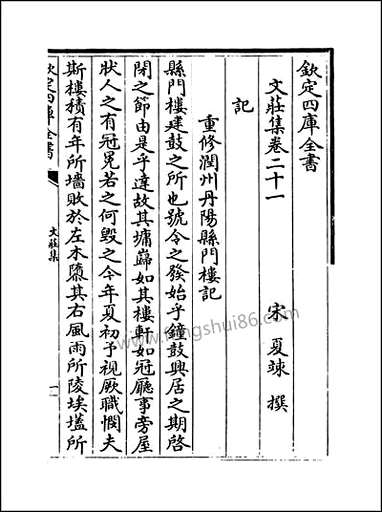 欽定四庫全書
文莊集卷二十一
宋 夏竦 撰
記
重修潤州丹陽縣門樓記
縣門樓建鼓之所也號令之發始乎鐘鼓興居之期啓
閉之節由是乎達故其墉巋如其樓軒如冠廳事旁屋
狀人之有冠冕若之何毀之今年夏初予視厥職憫夫
斯樓積有年所墻敗於左木隳其右風雨所陵埃壒所
欽定四庫全書
文莊集
一
www.fengshui86.com